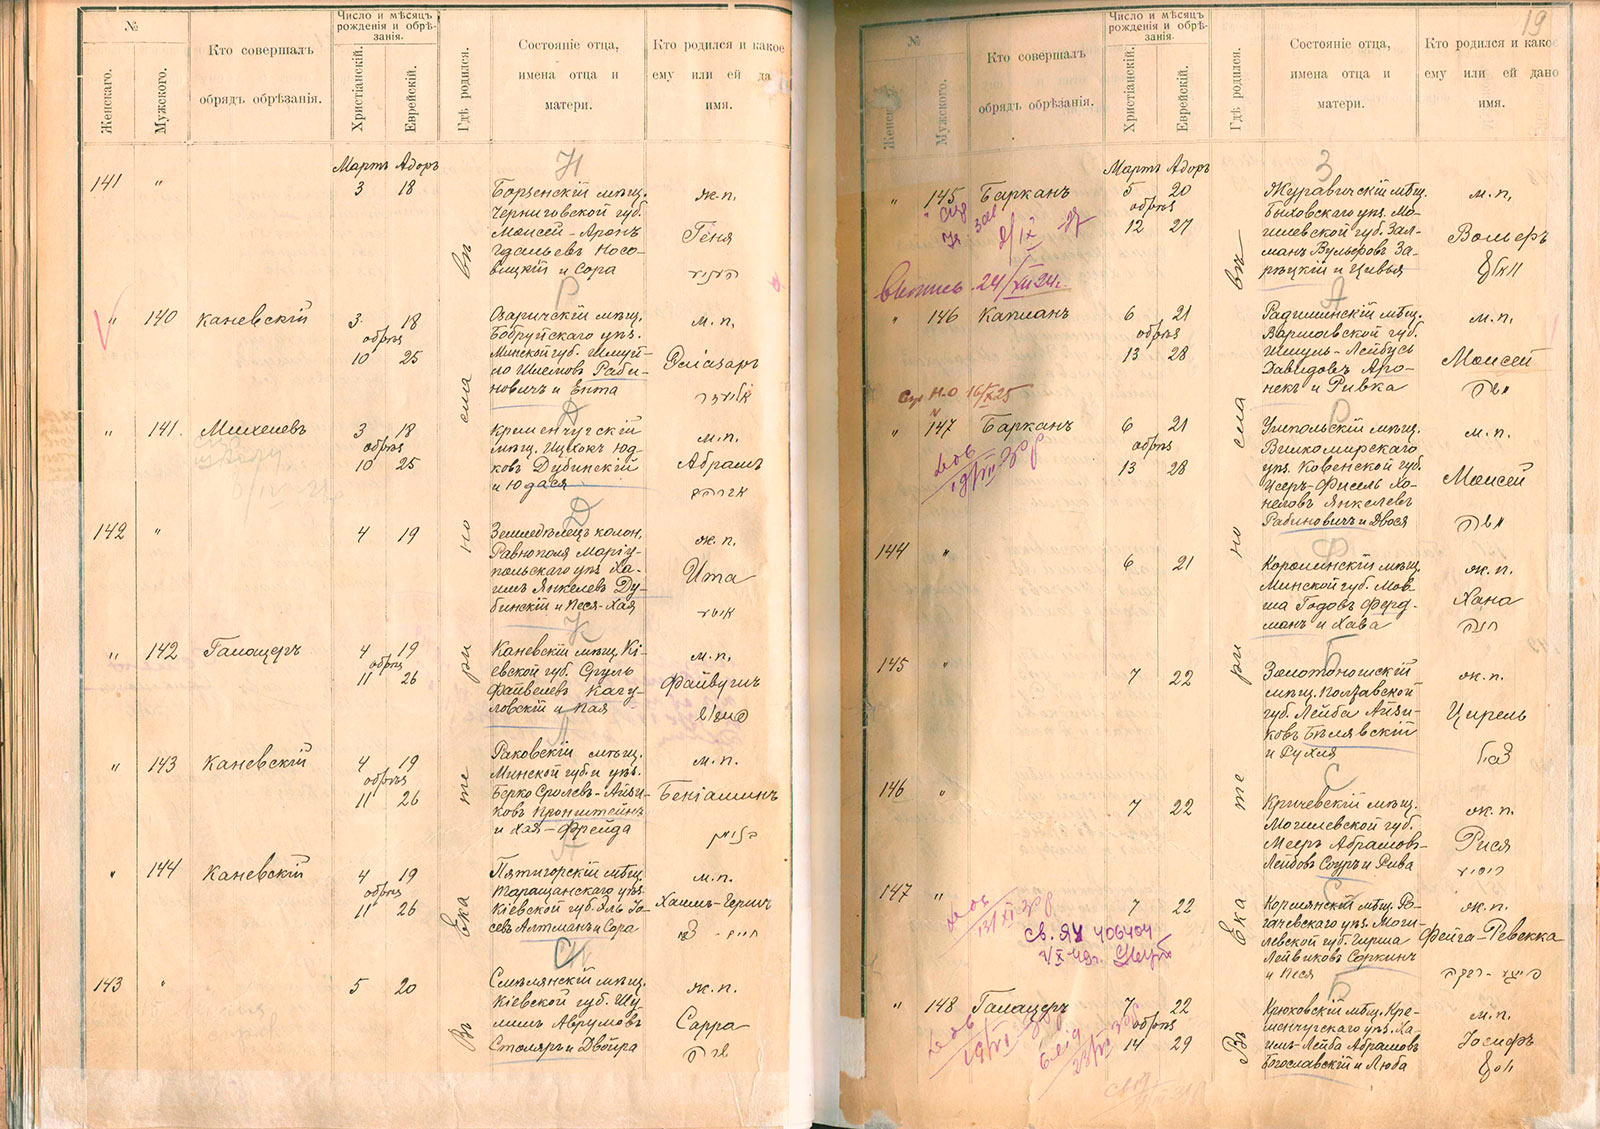 №
Женскаго.
Мужского.
Кто совершалъ
обрядъ обрѣзанія.
Число и мѣсяцъ
рожденія и обрѣ-
занія.
Христіанскій.
Еврейскій.
Гдѣ родился.
Состояніе отца,
имена отца и
матери.
Кто родился и какое
ему или ей да
имя.
Мартъ Адоръ
Н
141 " 3 18
Борзенскій мѣщ.
Черниговской губ.
Моисей-Аронъ
Гдальевъ Носо-
вицкій и Сора
ж.п.
Геня
Р
" 140 Каневскій 3 18
обрѣз
10 25
Озаричскій мѣщ.
Бобруйскаго уѣз.
Минской губ. Шмуй-
ло Шлемовъ Раби-
новичъ и Ента
м.п.
Эліазаръ
Д
" 141. Михелевъ 3 18
обрѣз
10 25
Кременчугскій
мѣщ. Ицхокъ Юд-
ковъ Дубинскій
и Юдася
м.п.
Абрамъ
Д
142 " 4 19
Земледѣлецъ колон.
Равнополя Маріу-
польскаго уѣз. Ха-
имъ Янкелевъ Ду-
бинскій и Песя-Хая
ж.п.
Ита
К
" 142 Галацеръ 4 19
обрѣз
11 26
Каневскій мѣщ. Кі-
евской губ. Сруль
Файвелевъ Кагу-
ловскій и Хая
м.п.
Файвушъ
" 143 Каневскій 4 19
обрѣз
11 26
Раковскій мѣщ.
Минской губ. и уѣз.
Берко Сролевъ-Айзи-
ковъ Кронштейнъ
и Хая-Фрейда
м.п.
Беніаминъ
А
" 144 Каневскій 4 19
обрѣз
11 26
Пятигорскій мѣщ.
Таращанскаго уѣз.
Кіевской губ. Эль Іо-
севъ Алтманъ и Сора
м.п.
Хаимъ-Гершъ
143 " 5 20
Смѣлянскій мѣщ.
Кіевской губ. Шу-
лимъ Аврумовъ
Столяръ и Двойра
ж.п.
Сарра
שרה
Въ Екатеринославѣ
19
№
Женск
Мужского.
Кто совершалъ
обрядъ обрѣзанія.
Число и мѣсяцъ
рожденія и обрѣ-
занія.
Христіанскій.
Еврейскій.
Гдѣ родился.
Состояніе отца,
имена отца и
матери.
Кто родился и какое
ему или ей дано
имя.
Мартъ Адоръ
З
" 145 Барканъ 5 20
обрѣз
12 27
Журавичскій мѣщ.
Быховскаго уѣз. Мо-
гилевской губ. Зал-
манъ Вульфовъ За-
рѣцкій и Цивья
м.п.
Вольфъ
24/XII 24г.
А
" 146 Капланъ 6 21
обрѣз
13 28
Радиминскій мѣщ.
Варшавской губ.
Шмуль-Лейбусь
Давидовъ Аро-
некъ и Ривка
м.п.
Моисей
משה
16/X 25
Р
" 147 Барканъ 6 21
обрѣз
13 28
Ушпольскій мѣщ.
Вилкомирскаго
уѣз. Ковенской губ.
Исеръ-Фисель Ха-
неловъ Янкелевъ
Рабиновичъ и Двося
м.п.
Моисей
משה
Ф
144 " 6 21
Королинскій мѣщ.
Минской губ. Мов-
ша Годовъ Ферд-
манъ и Хава
ж.п.
Хана
חנה
Б
145 " 7 22
Золотоношскій
мѣщ. Полтавской
губ. Лейба Айзи-
ковъ Бѣлявскій
и Рухля
ж.п.
Цирель
С
146 " 7 22
Кричевскій мѣщ.
Могилевской губ.
Мееръ Абрамовъ-
Лейбовъ Соуръ и Рива
ж.п.
Рися
С
147 " 7 22
Кормянскій мѣщ. Ро-
гачевскаго уѣз. Моги-
левской губ. Гирша
Лейвиковъ Соркинъ
и Песя
ж.п.
Фейга-Ревекка
св. ЯЧ 406404
Б
" 148 Галацеръ 7 22
обрѣз
14 29
Крюковскій мѣщ. Кре-
менчугскаго уѣз. Ха-
имъ-Лейба Абрамовъ
Богославскій и Люба
м.п.
Іосифъ
Въ Екатеринославѣ